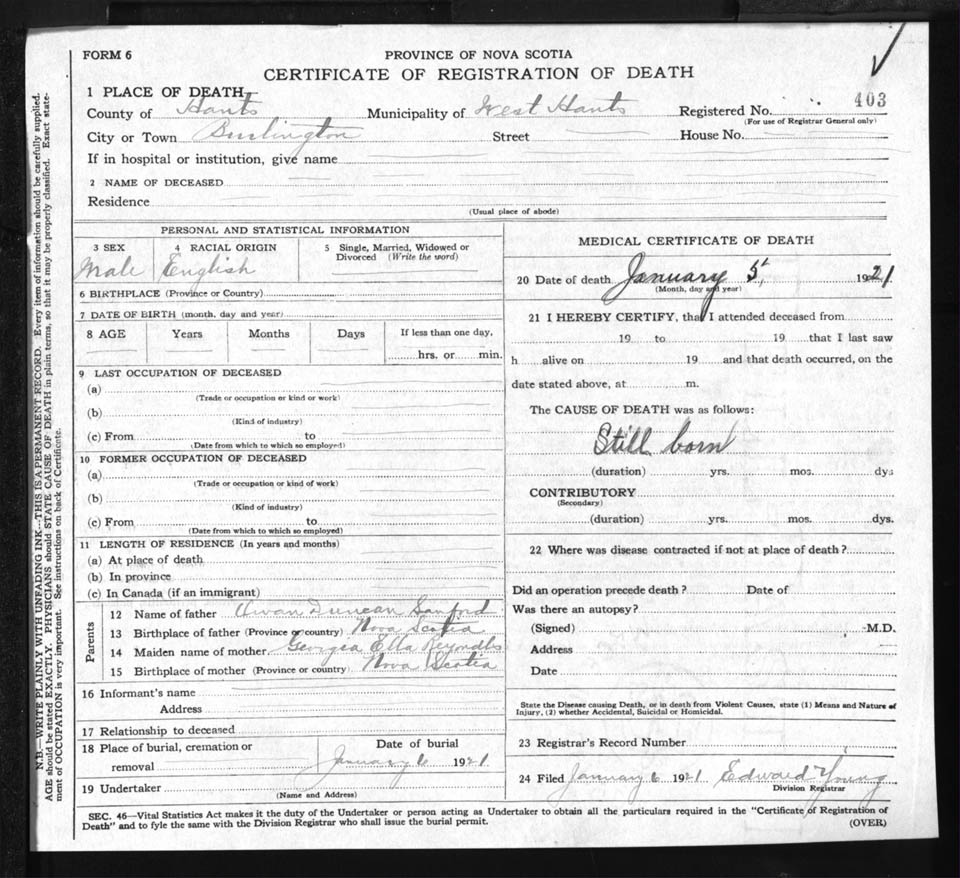 FORM 6
PROVINCE OF NOVA SCOTIA
CERTIFICATE OF REGISTRATION OF DEATH
1 PLACE OF DEATH
County of Hants Municipality of West Hants Registered No. 403
(For use of Registrar General only)
City or Town Burlington Street House No.
If in hospital or institution, give name
2 NAME OF DECEASED
Residence
(Usual place of abode)
PERSONAL AND STATISTICAL INFORMATION
3 SEX 4 RACIAL ORIGIN 5 Single, Married, Widowed or
Divorced (Write the word)
Male English
6 BIRTHPLACE (Province or Country)
7 DATE OF BIRTH (month, day and year)
8 AGE Years Months Days If less than one day,
hrs. or min.
9 LAST OCCUPATION OF DECEASED
(a)
(Trade or occupation or kind or work)
(b)
(Kind of industry)
(c) From to
(Date from which to which so employed)
10 FORMER OCCUPATION OF DECEASED
(a)
(Trade or occupation or kind of work)
(b)
(Kind of industry)
(c) From to
(Date from which to which so employed)
11 LENGTH OF RESIDENCE (In years and months)
(a) At place of death
(b) In province
(c) In Canada (if an immigrant)
Parents
12 Name of father Owan Duncan Sanford
13 Birthplace of father (Province or country) Nova Scotia
14 Maiden name of mother Georgia Ella Reynolds
15 Birthplace of mother (Province or country) Nova Scotia
16 Informant's name
Address
17 Relationship to deceased
18 Place of burial, cremation or
removal
Date of burial
January 6 1921
19 Undertaker
(Name and Address)
MEDICAL CERTIFICATE OF DEATH
20 Date of death January 5, 1921
(Month, day and year)
21 I HEREBY CERTIFY, that I attended deceased from
19 to 19 that I last saw
h alive on 19 and that death occurred, on the
date stated above, at m.
The CAUSE OF DEATH was as follows:
Still born
(duration) yrs. mos. dys
CONTRIBUTORY
(Secondary)
(duration) yrs. mos. dys.
22 Where was disease contracted if not at place of death?
Did an operation precede death? Date of
Was there an autopsy?
(Signed) M.D.
Address
Date
State the Disease causing Death, or in death from Violent Causes, state (1) Means and Nature of
Injury, (2) whether Accidental, Suicidal or Homicidal.
23 Registrar's Record Number
24 Filed January 6 1921 Edward Young
Division Registrar
SEC. 46—Vital Statistics Act makes it the duty of the Undertaker or person acting as Undertaker to obtain all the particulars required in the "Certificate of Registration of
Death" and to fyle the same with the Division Registrar who shall issue the burial permit.
(OVER)
N.B.—WRITE PLAINLY WITH UNFADING INK—THIS IS A PERMANENT RECORD. Every item of information should be carefully supplied.
AGE should be stated EXACTLY. PHYSICIANS should STATE CAUSE OF DEATH in plain terms, so that it may be properly classified. Exact state-
ment of OCCUPATION is very important. See instructions on back of Certificate.